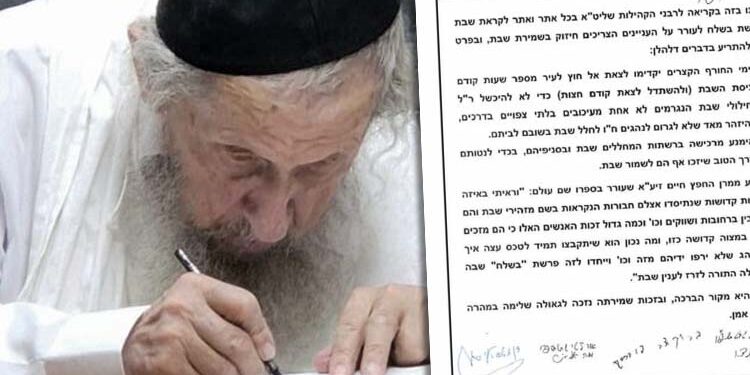 נו בזה בקריאה לרבני הקהילות שליט"א בכל אתר ואתר לקראת שבת
שת בשלח לעורר על העניינים הצריכים חיזוק בשמירת שבת, ובפרט
להתריע בדברים דלהלן:
ימי החורף הקצרים יקדימו לצאת אל חוץ לעיר מספר שעות קודם
יסת השבת (ולהשתדל לצאת קודם חצות) כדי לא להיכשל ר"ל
חילולי שבת הנגרמים לא אחת מעיכובים בלתי צפויים בדרכים,
היזהר מאד שלא לגרום לנהגים ח"ו לחלל שבת בשובם לביתם.
הימנע מרכישה ברשתות המחללים שבת ובסניפיהם, בכדי לנטותם
רך הטוב שיזכו אף הם לשמור שבת.
ע ממרן החפץ חיים זיע"א שעורר בספרו שם עולם: "וראיתי באיזה
ות קדושות שנתיסדו אצלם חבורות הנקראות בשם מזהירי שבת והם
בין ברחובות ושווקים וכו' וכמה גדול זכות האנשים האלו כי הם מזכים
במצוה קדושה כזו, ומה נכון הוא שיתקבצו תמיד לטכס עצה איך
הג שלא ירפו ידיהם מזה וכו' וייחדו לזה פרשת "בשלח" שבה
לה התורה לזרז לענין שבת".
היא מקור הברכה, ובזכות שמירתה נזכה לגאולה שלימה במהרה
אמן.